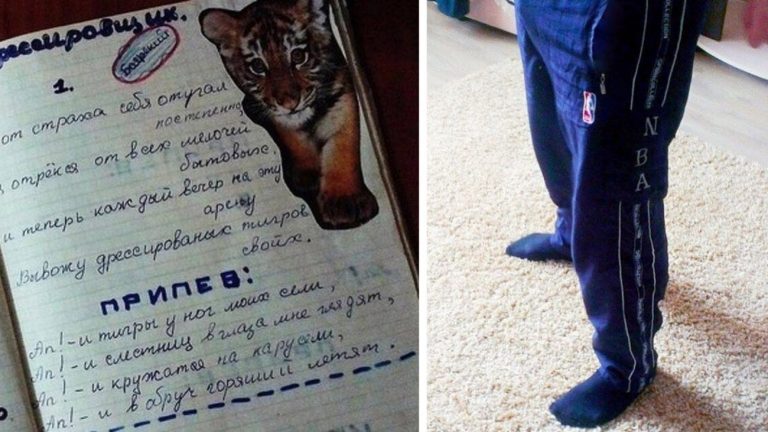 дрессировщик.
Боярский
1.
от страха себя отучал
постепенно,
отрёкся от всех мелочей
бытовых.
и теперь каждый вечер на эту
арену
Вывожу дрессированых тигров
своих.
ПРИПЕВ:
Ап! - и тигры у ног моих сели,
Ап! - и с лестниц в глаза мне глядят,
Ап! - и кружатся на карусели,
Ап! - и в обруч горящий летят.
COLLECTION
NBA